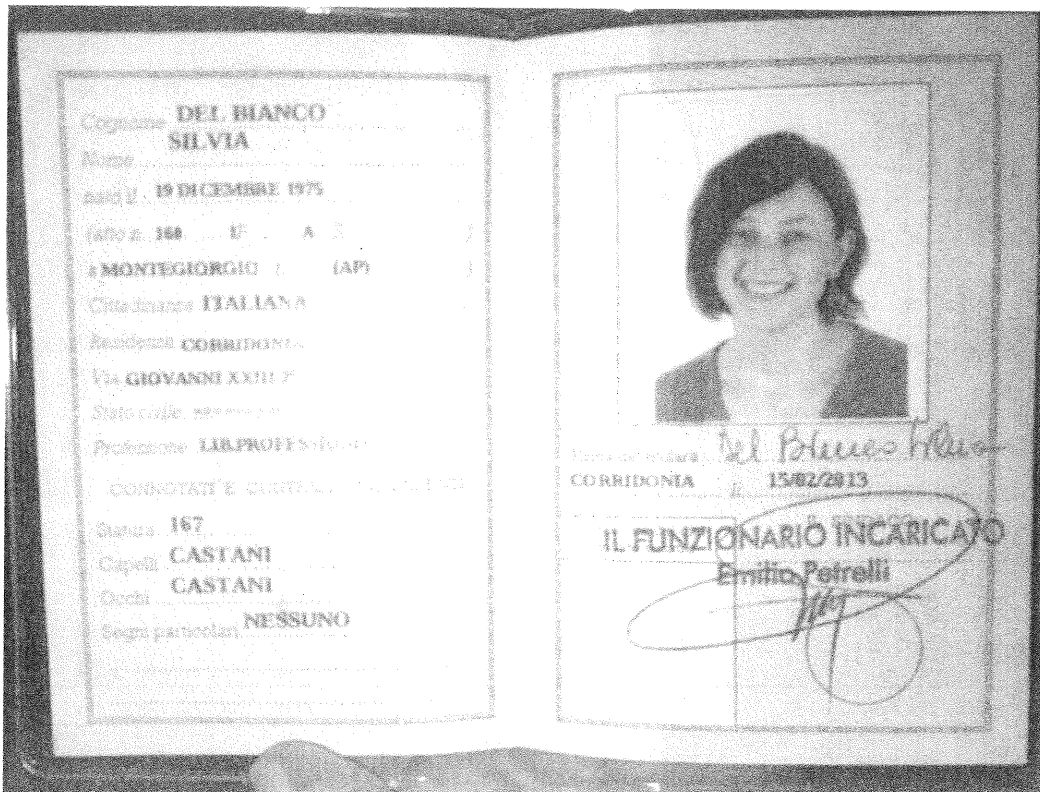 Cognome DEL BIANCO
Nome SILVIA
nato il 19 DICEMBRE 1975
(atto n. 168 A
a MONTEGIORGIO (AP) )
Cittadinanza ITALIANA
Residenza CORRIDONIA
Via GIOVANNI XXIII
Stato civile
Professione LIB.PROFESS
CONNOTATI E
Statura 167
Capelli CASTANI
Occhi CASTANI
Segni particolari NESSUNO
Del Bianco Silvia
CORRIDONIA li 15/02/2013
IL FUNZIONARIO INCARICATO
Emilio Petrelli